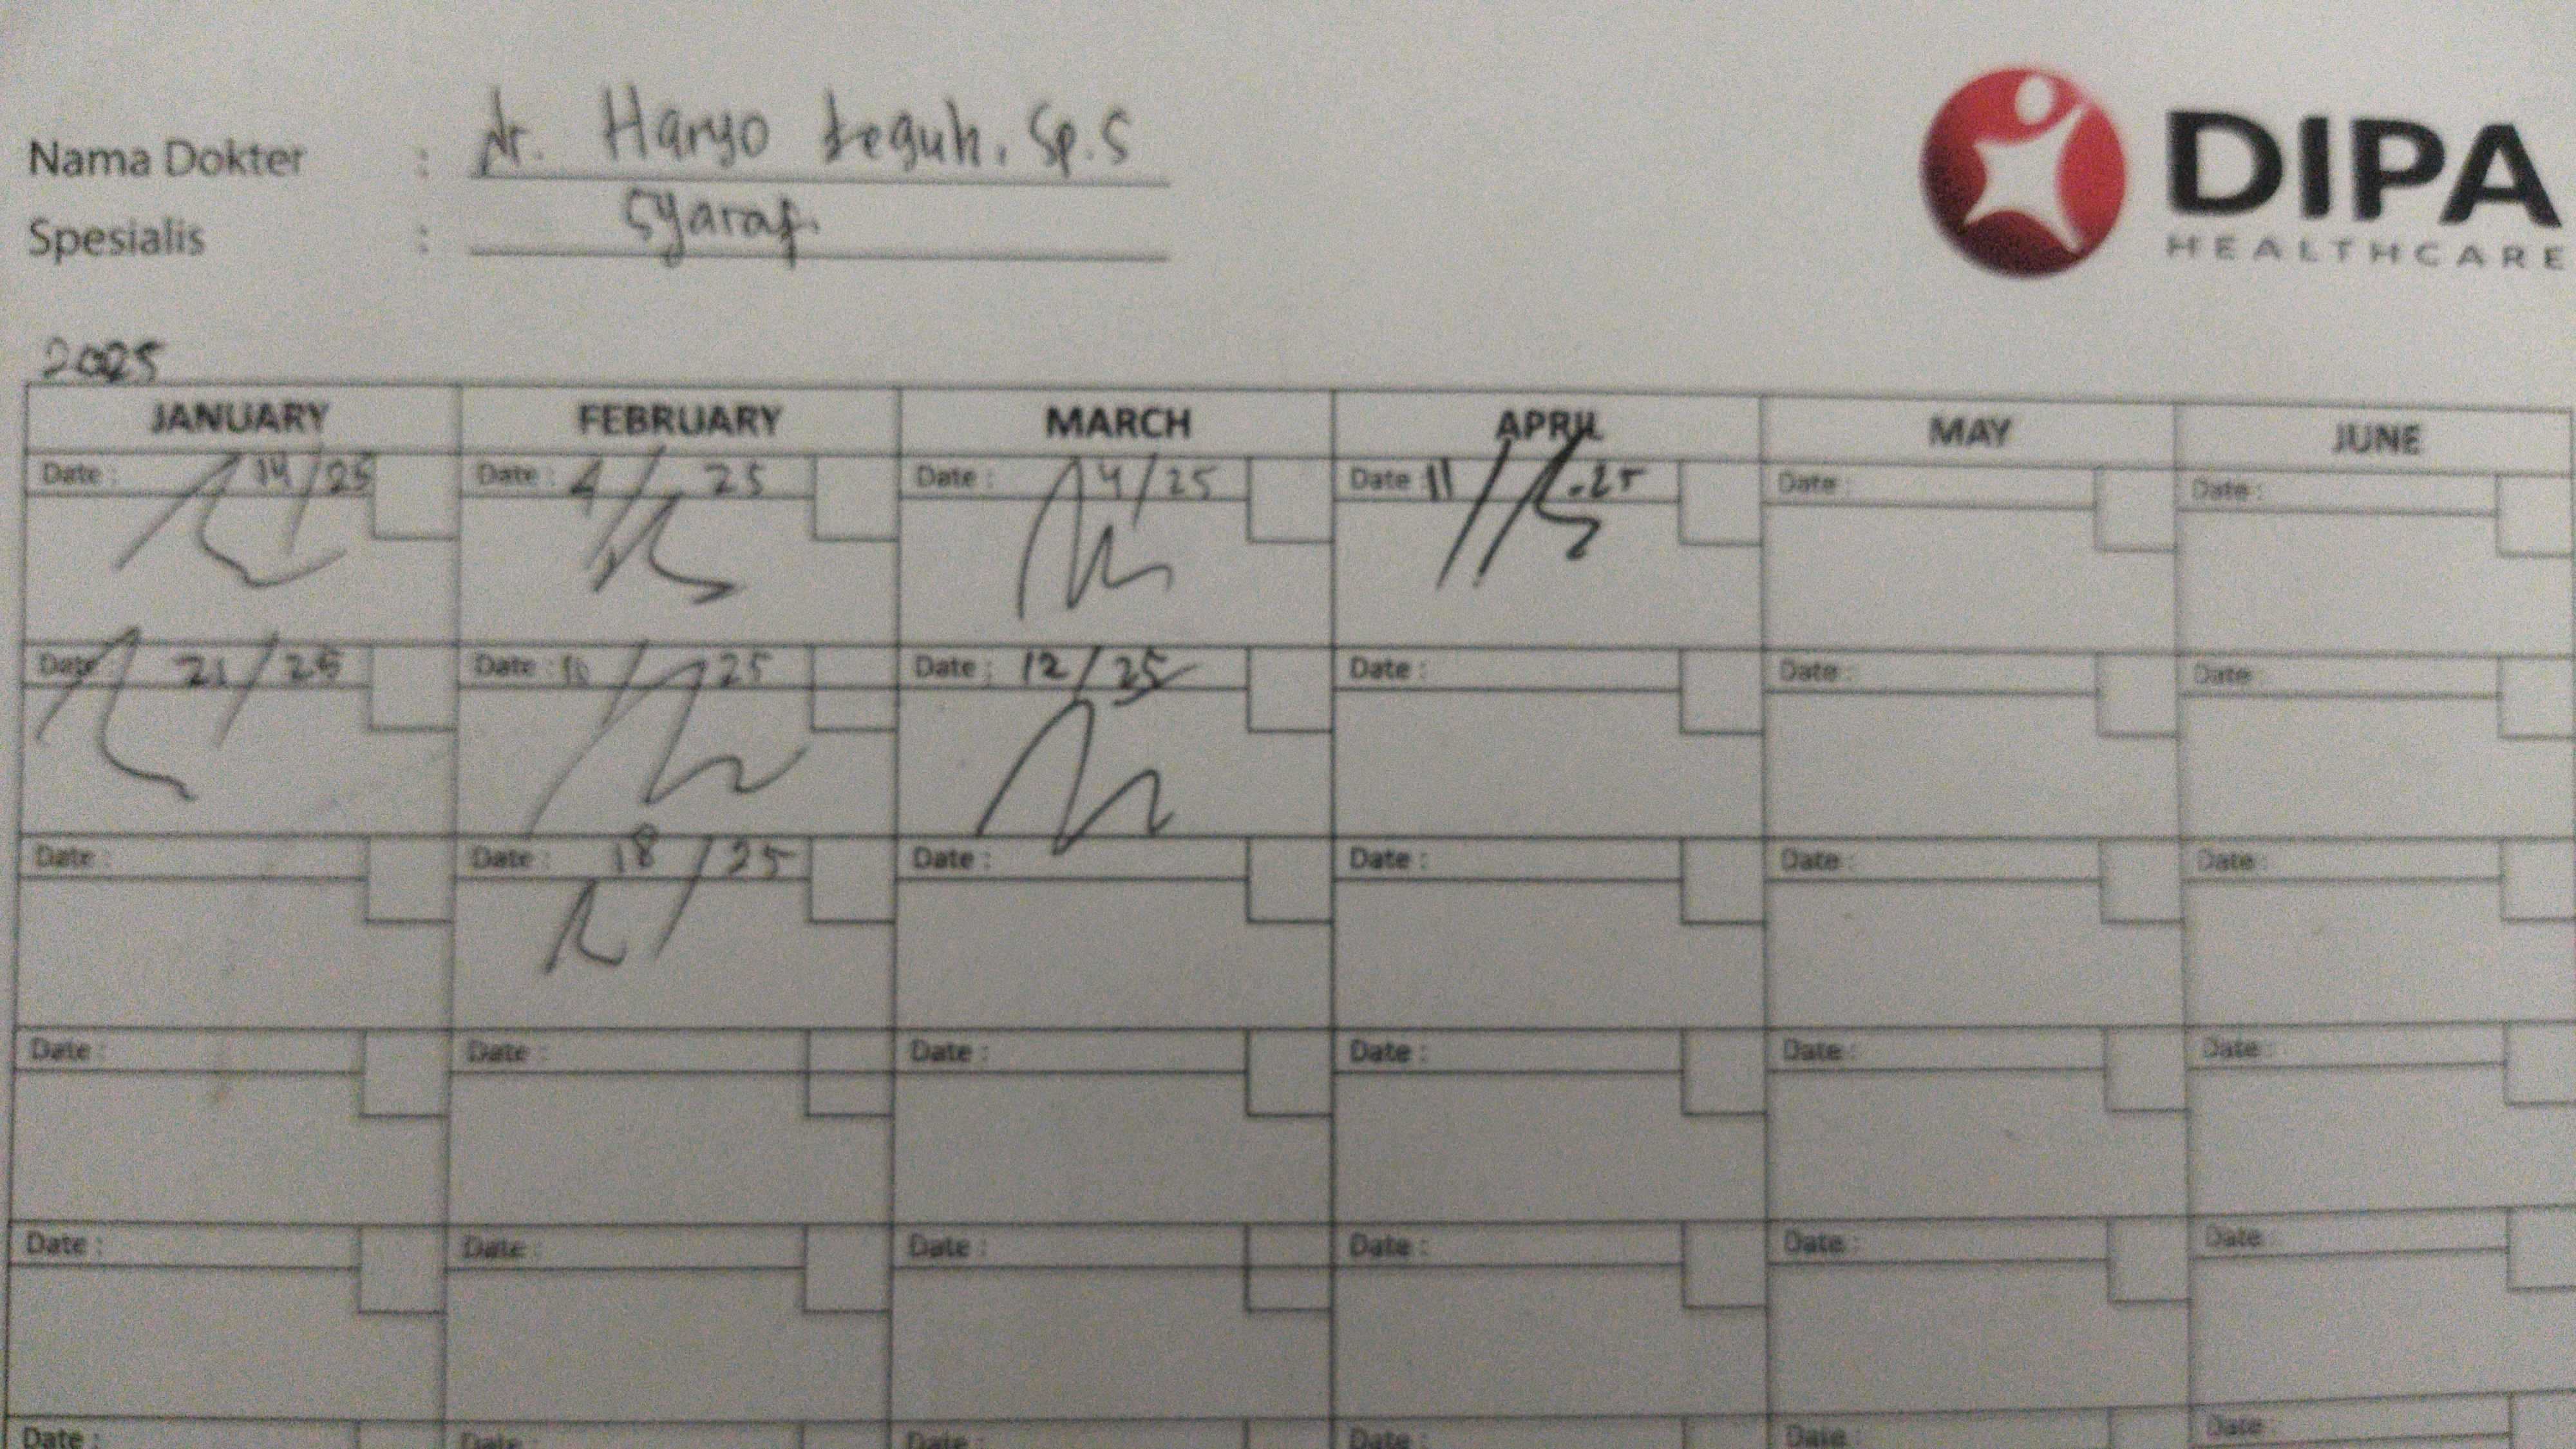 Nama Dokter : dr. Haryo teguh, Sp.S
Spesialis : Syaraf.
DIPA
HEALTHCARE
2025
JANUARY FEBRUARY MARCH APRIL MAY JUNE
Date : 14/25 Date : 4/25 Date : 4/25 Date 11/ .25 Date : Date :
Date : 21/25 Date : /25 Date : 12/25 Date : Date : Date :
Date : Date : 18/25 Date : Date : Date : Date :
Date : Date : Date : Date : Date : Date :
Date : Date : Date : Date : Date : Date :
Date : Date : Date : Date : Date : Date :